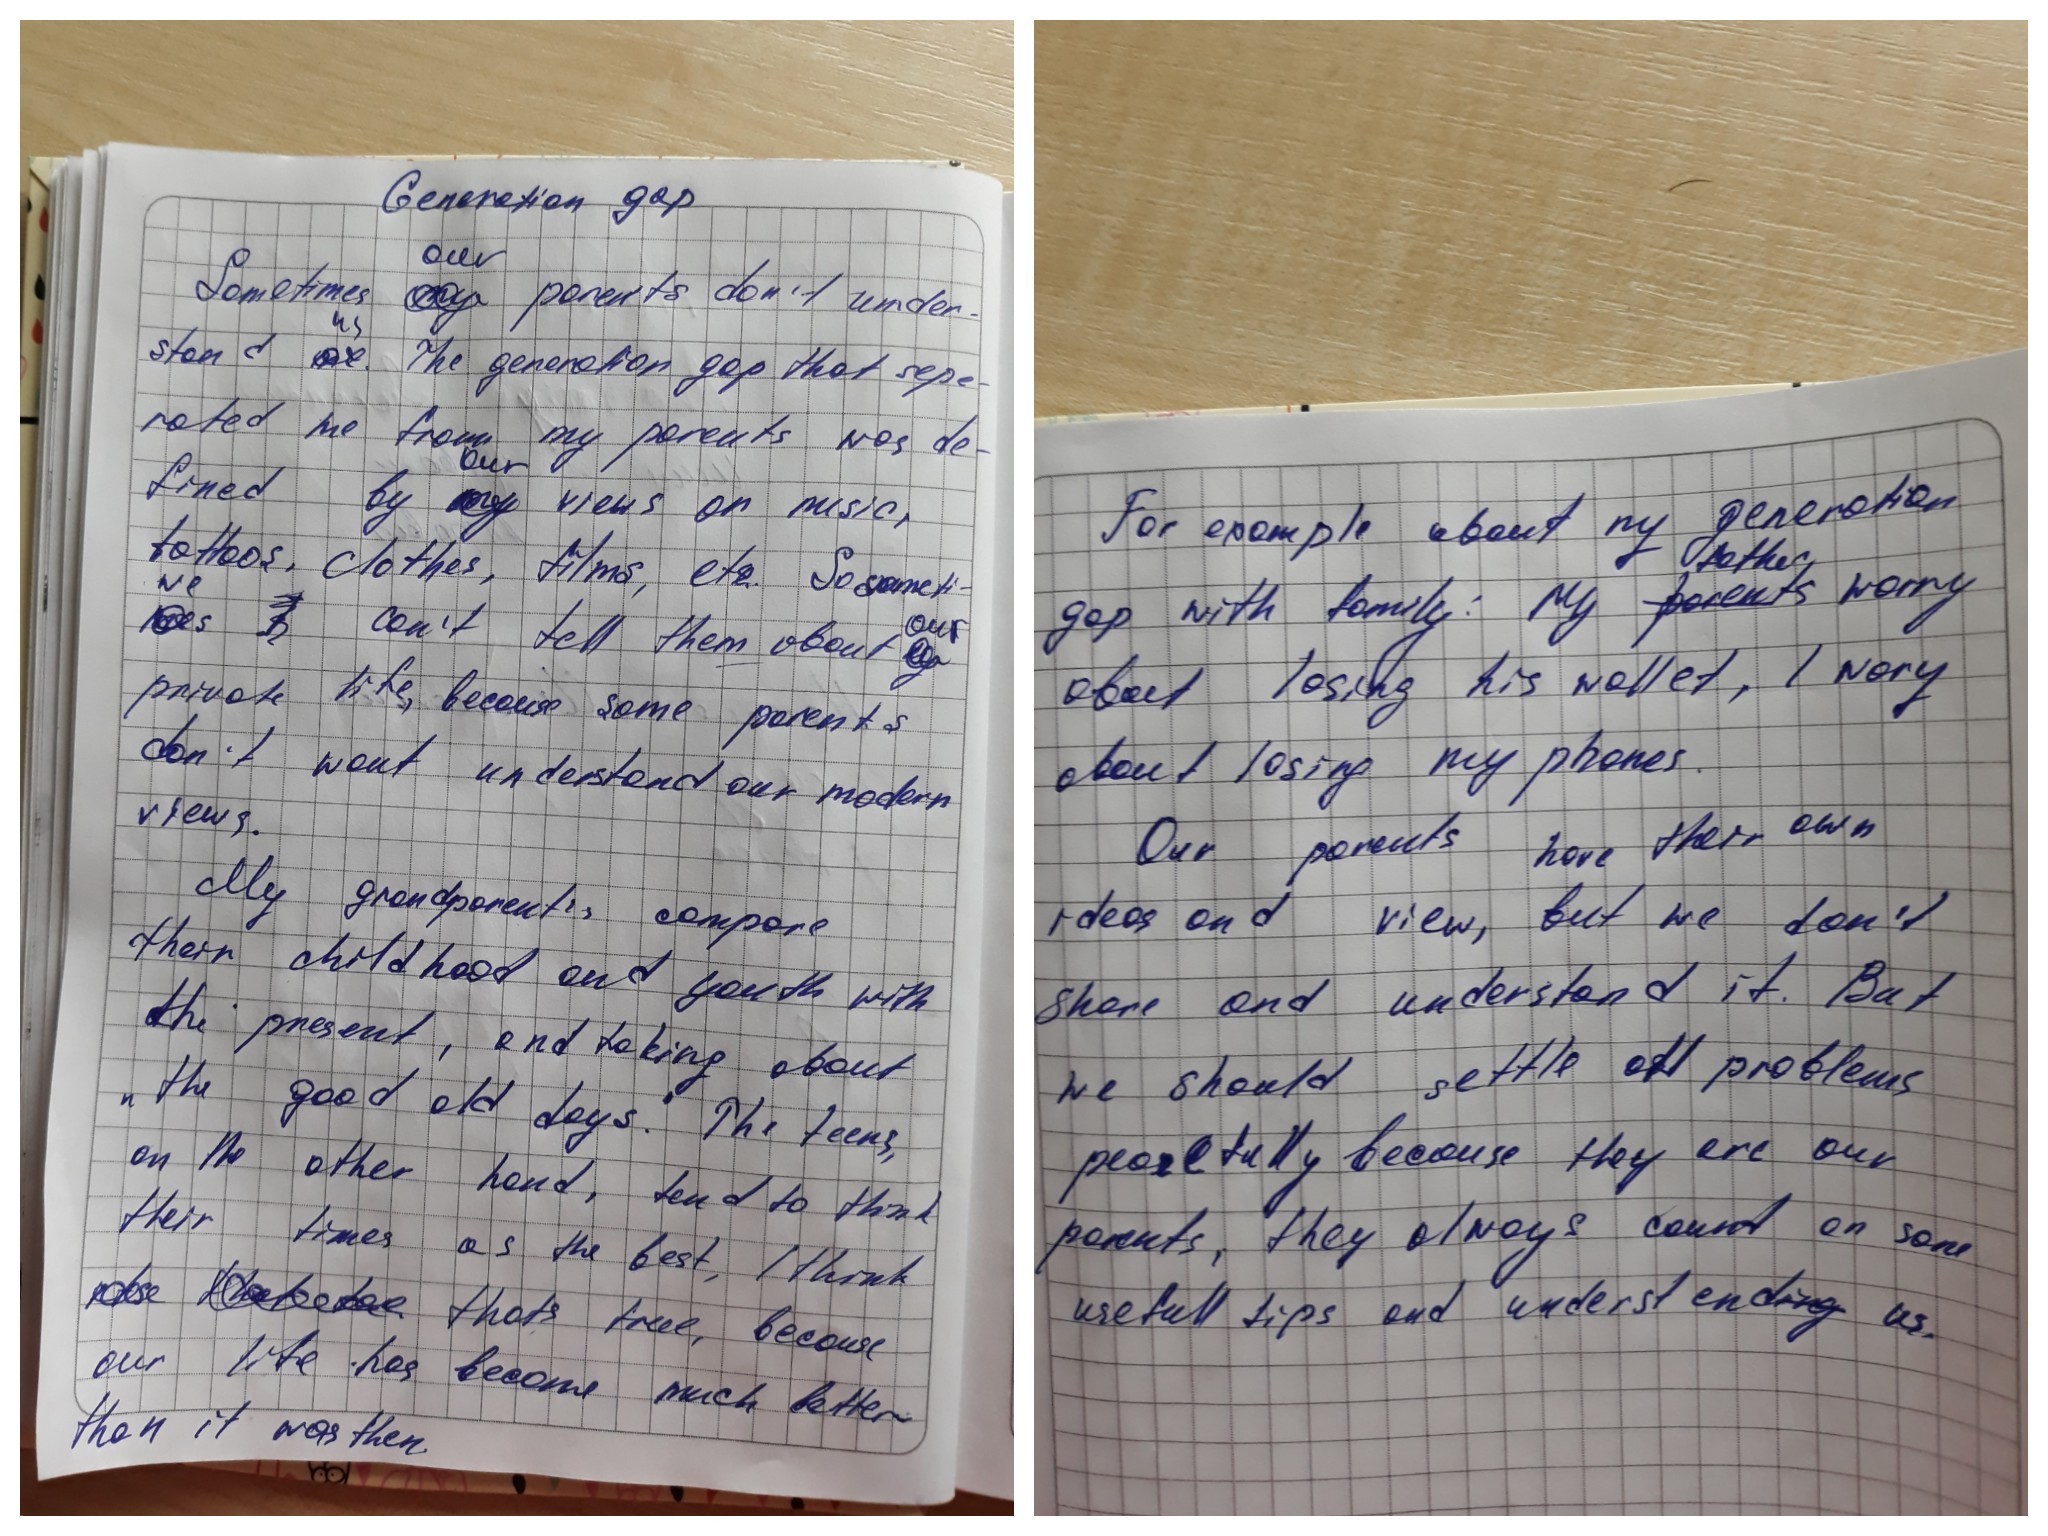 Generation gap
our
Sometimes parents don't under-
us
stand . The generation gap that sepe-
rated me from my parents was de-
our
fined by views on music,
tattoos, clothes, films, etc. So someti-
we our
mes can't tell them about
private life, because some parents
don't want understand our modern
views.
My grandparents compare
their childhood and youth with
the present, and taking about
"the good old days." The teens,
on the other hand, tend to think
their times as the best, I think
thats true, because
our life has become much better
than it was then.
For example about my generation
father
gap with family: My parents worry
about losing his wallet, I wory
about losing my phones.
Our parents have their own
ideas and view, but we don't
share and understand it. But
we should settle all problems
peacefully because they are our
parents, they always count on some
usefull tips and understending us.